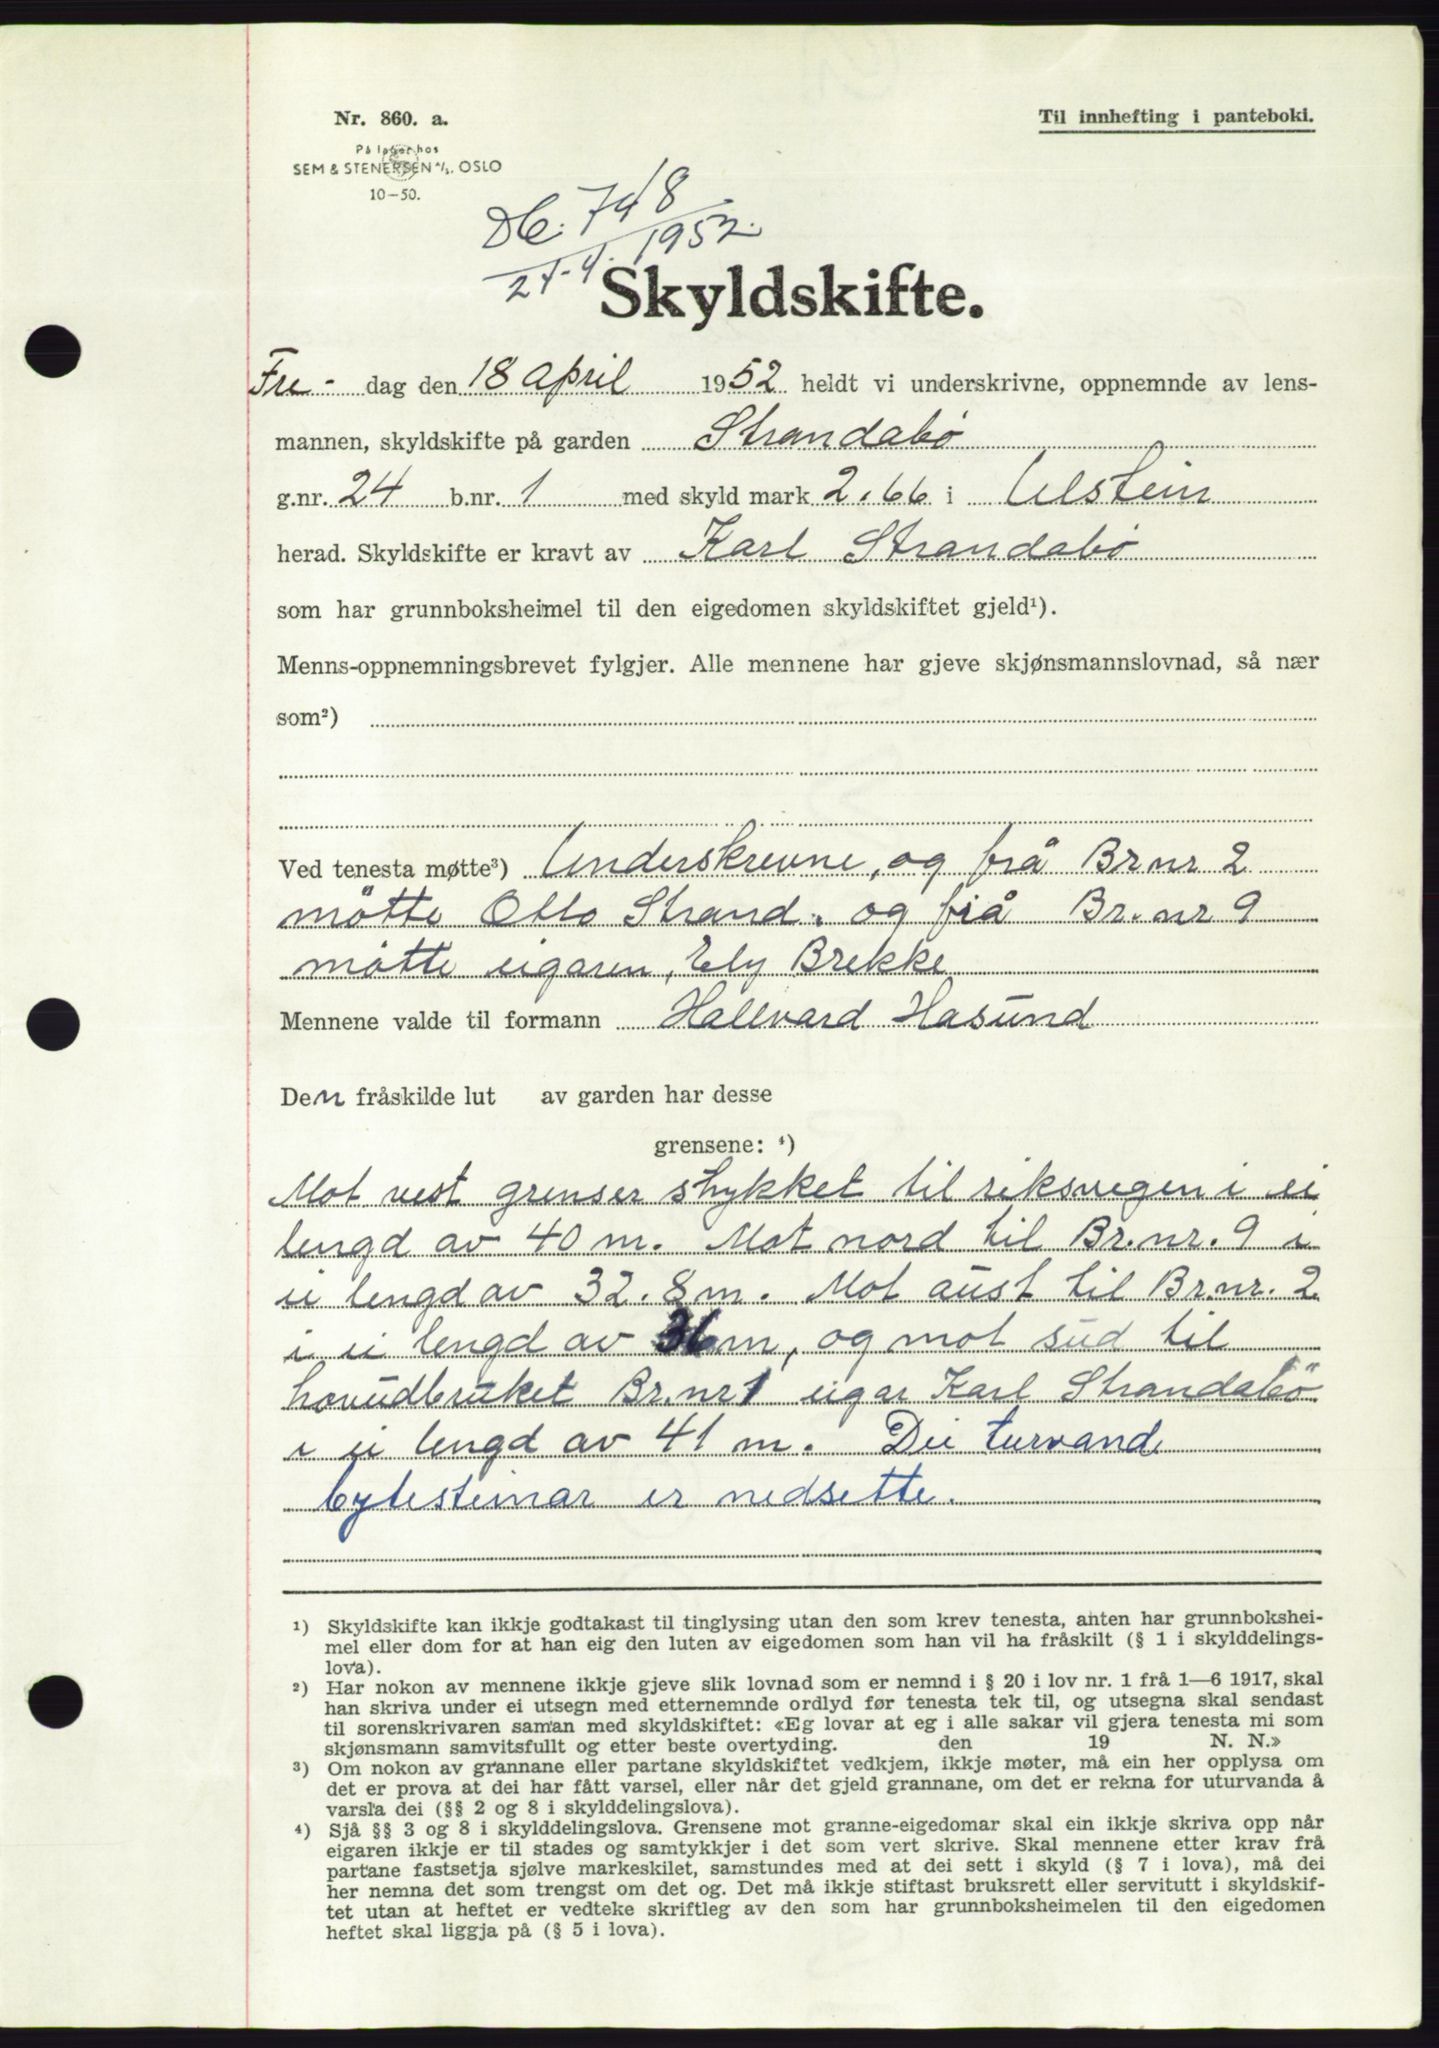 Nr. 860. a.
Til innhefting i panteboki.
På lager hos
SEM & STENERSEN A/S. OSLO
10-50.
Db. 748/1952
Skyldskifte.
Fre- dag den 18 april 1952 heldt vi underskrivne, oppnemnde av lens-
mannen, skyldskifte på garden Strandabö
g.nr. 24 b.nr. 1 med skyld mark 2.66 i Ulstein
herad. Skyldskifte er kravt av Karl Strandabö
som har grunnboksheimel til den eigedomen skyldskiftet gjeld¹).
Menns-oppnemningsbrevet fylgjer. Alle mennene har gjeve skjønsmannslovnad, så nær
som²)
Ved tenesta møtte³) Underskrevne, og frå Br nr 2
mötte Otto Strand. og frå Br. nr 9
mötte eigaren, Ely Brekke
Mennene valde til formann Hallvard Hasund
Den fråskilde lut av garden har desse
grensene: ⁴)
Mot vest grenser stykket til riksvegen i ei
lengd av 40 m. Mot nord til Br. nr. 9 i
ei lengd av 32.8 m. Mot aust til Br. nr. 2
i ei lengd av 36 m, og mot sud til
hovudbruket Br. nr 1 eigar Karl Strandabö
i ei lengd av 41 m. Dei turvand
bytesteinar er nedsette.
¹) Skyldskifte kan ikkje godtakast til tinglysing utan den som krev tenesta, anten har grunnbokshei-
mel eller dom for at han eig den luten av eigedomen som han vil ha fråskilt (§ 1 i skylddelings-
lova).
²) Har nokon av mennene ikkje gjeve slik lovnad som er nemnd i § 20 i lov nr. 1 frå 1—6 1917, skal
han skriva under ei utsegn med etternemnde ordlyd før tenesta tek til, og utsegna skal sendast
til sorenskrivaren saman med skyldskiftet: «Eg lovar at eg i alle sakar vil gjera tenesta mi som
skjønsmann samvitsfullt og etter beste overtyding. den 19 N. N.»
³) Om nokon av grannane eller partane skyldskiftet vedkjem, ikkje møter, må ein her opplysa om
det er prova at dei har fått varsel, eller når det gjeld grannane, om det er rekna for uturvanda å
varsla dei (§§ 2 og 8 i skylddelingslova).
⁴) Sjå §§ 3 og 8 i skylddelingslova. Grensene mot granne-eigedomar skal ein ikkje skriva opp når
eigaren ikkje er til stades og samtykkjer i det som vert skrive. Skal mennene etter krav frå
partane fastsetja sjølve markeskilet, samstundes med at dei sett i skyld (§ 7 i lova), må dei
her nemna det som trengst om det og. Det må ikkje stiftast bruksrett eller servitutt i skyldskif-
tet utan at heftet er vedteke skriftleg av den som har grunnboksheimelen til den eigedomen
heftet skal liggja på (§ 5 i lova).